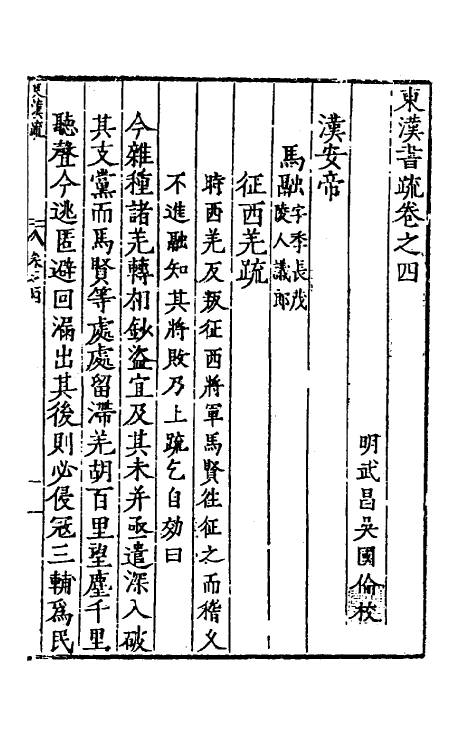 東漢書疏卷之四
明武昌吳國倫校
漢安帝
馬融字季長茂
陵人議郎
征西羌疏
時西羌反叛征西將軍馬賢往征之而稽久
不進融知其將敗乃上疏乞自効曰
今雜種諸羌轉相鈔盜宜及其未并亟遣深入破
其支黨而馬賢等處處留滯羌胡百里望塵千里
聽聲今逃匿避回漏出其後則必侵寇三輔爲民
東漢疏
卷之四
一